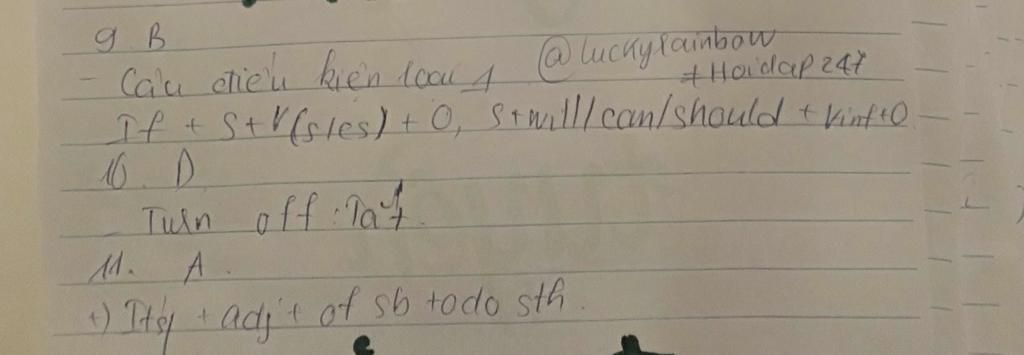 9. B
- Câu điều kiện loại 1 @luckyrainbow
#Hoidap247
If + S+V(s/es) + O, S+will/can/should + Vinf+O
10. D
- Turn off : Tắt
11. A.
+) It's + adj + of sb to do sth.